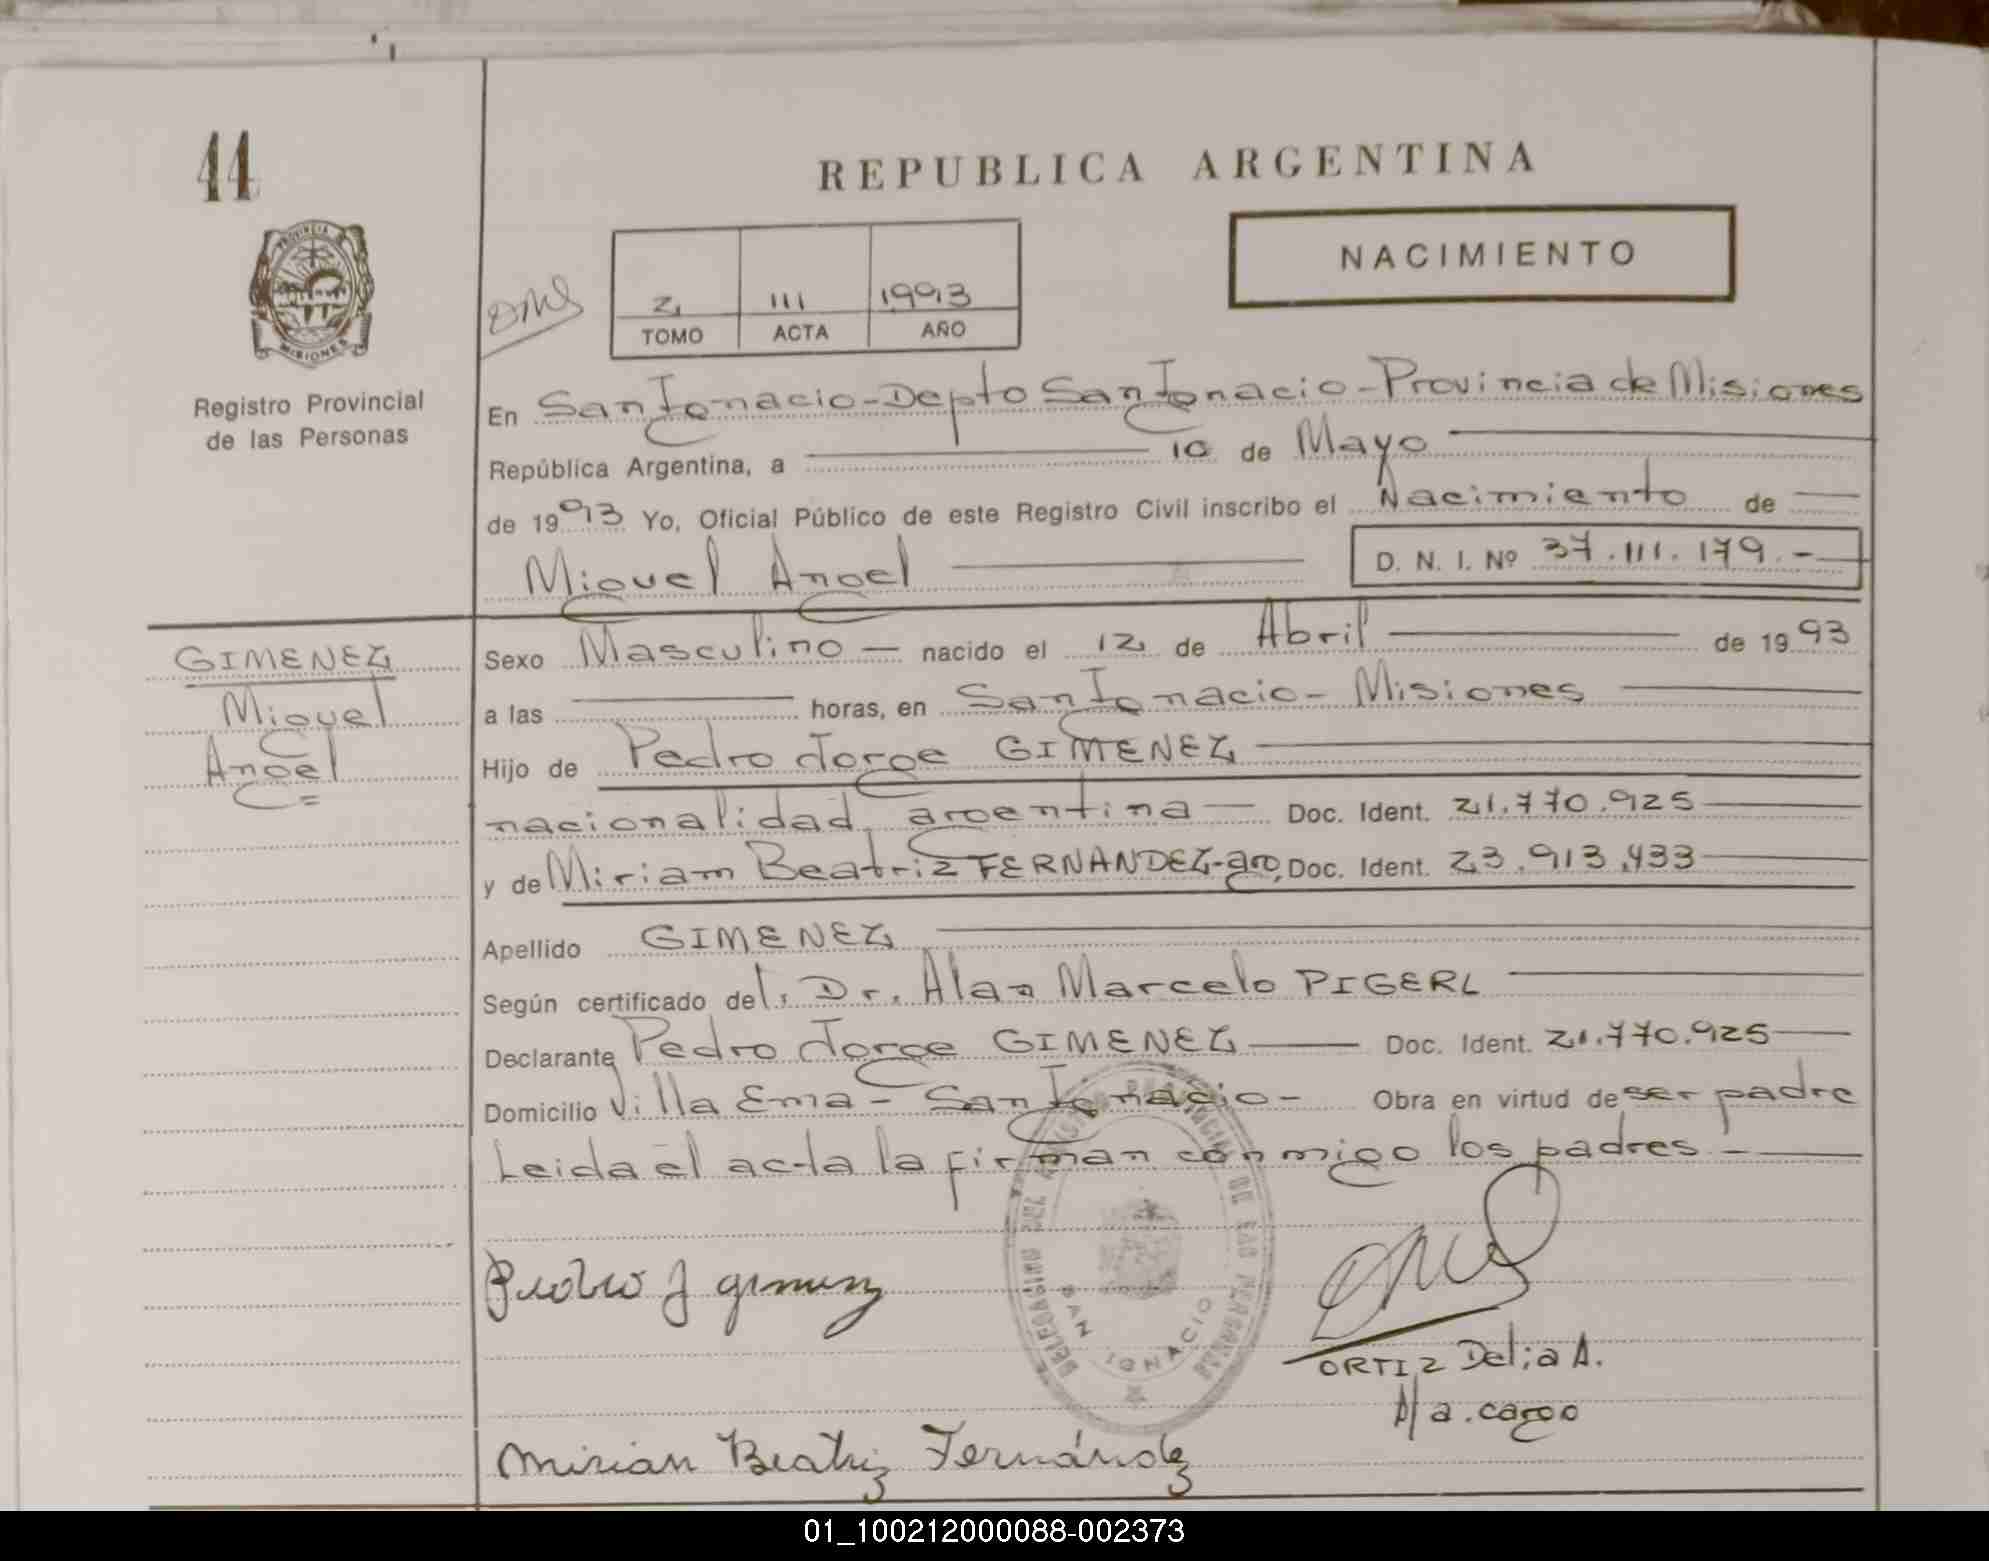 44
REPUBLICA ARGENTINA
PROVINCIA
MISIONES
NACIMIENTO
2 111 1993
TOMO ACTA AÑO
Registro Provincial
de las Personas
En San Ignacio - Depto San Ignacio - Provincia de Misiones
República Argentina, a 10 de Mayo
de 1993 Yo, Oficial Público de este Registro Civil inscribo el Nacimiento de
Miguel Angel D. N. I. Nº 37.111.179.-
GIMENEZ
Miguel
Angel
Sexo Masculino — nacido el 12 de Abril de 1993
a las horas, en San Ignacio - Misiones
Hijo de Pedro Jorge GIMENEZ
nacionalidad argentina — Doc. Ident. 21.770.925
y de Miriam Beatriz FERNANDEZ - arg, Doc. Ident. 23.913.433
Apellido GIMENEZ
Según certificado del: Dr. Alan Marcelo PIGERL
Declarante Pedro Jorge GIMENEZ — Doc. Ident. 21.770.925
Domicilio Villa Ema - San Ignacio - Obra en virtud de ser padre
Leida el acta la firman conmigo los padres.-
DELEGACION DEL REGISTRO PROVINCIAL DE LAS PERSONAS
SAN IGNACIO
Pedro J gimenez
ORTIZ Delia A.
A/a.cargo
Mirian Beatriz Fernández
01_100212000088-002373